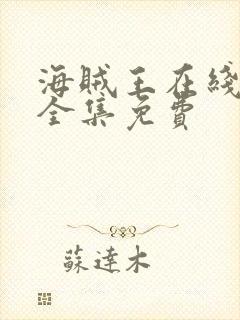 海贼王在綫
全集免費
蘇達木